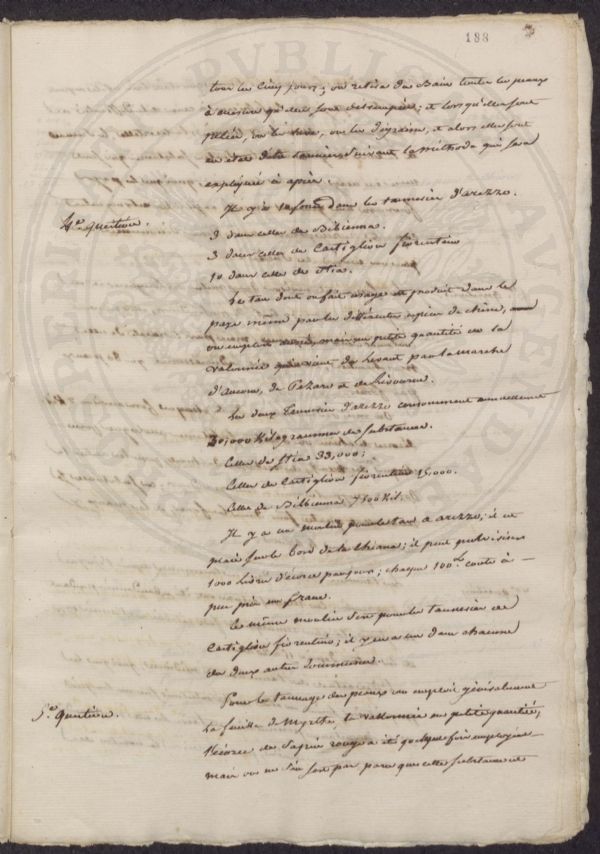 188
tous les cinq jours; on retire du Bain toutes les peaux
à mesure qu'elles sont detrempées; et lorsqu'elles sont
pelées, on les lave, on les dégraisse, et alors elles sont
en état d'etre tannées suivant la méthode qui sera
expliquée ci après.
4.e question. Il y a 14 fosses dans les tanneries d'arezzo.
3 dans celles de Bibienna.
3 dans celles de Castiglion fiorentino
10 dans celles de Stia.
Le tan dont on fait usage est produit dans le
pays même par les différentes espèces de chêne,
on emploie aussi, mais en petite quantité la
valonnée qui vient du Levant par la marche
d'Ancone, de Pezaro et de Livourne.
Les deux Tanneries d'arezzo consomment annuellement
30,000 Kilogrammes de substances.
Celles de Stia 33,000;
Celles de Castiglion fiorentino 15,000.
Celles de Bibienna 7500 Kil.
Il y a un moulin pour le tan a arezzo, il est
placé sur le bord de la Chiana; il peut pulvériser
1000 Livres d'écorce par jour; chaque 100 L. coute à
peu près un franc.
Ce même moulin sert pour les tanneries de
Castiglion fiorentino; il y en a un dans chacune
des deux autres Communes.
5.e question. Pour le tannage des peaux on emploie généralement
la feuille de Myrthe, la vallonnée en petite quantité;
l'écorce de sapin rouge a été quelque fois employée
mais on ne s'en sert pas parce que cette substance est